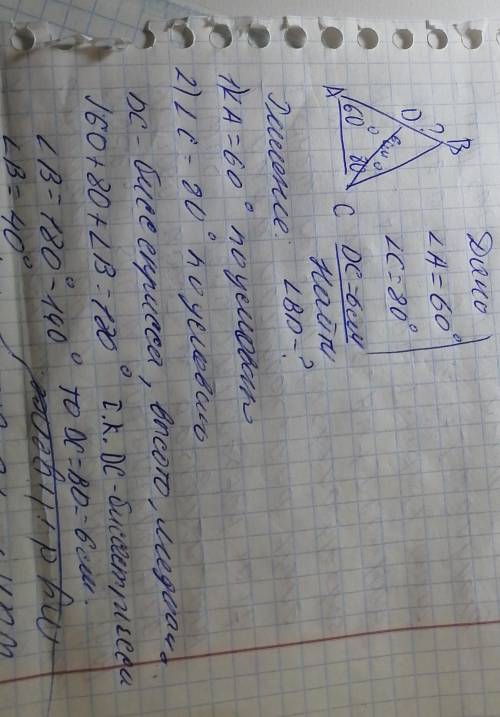 Дано
∠A=60°
∠C=80°
DC=6см
Найти
∠BD-?
B
D
?
A
60°
6см
80°
C
Решение:
1) ∠A=60° по условию
2) ∠C=80° по условию
DC - биссектриса, высота, медиана.
60+80+∠B=180° т.к. DC-биссектриса
∠B=180°-140° то DC=BD=6см.
∠B=40°